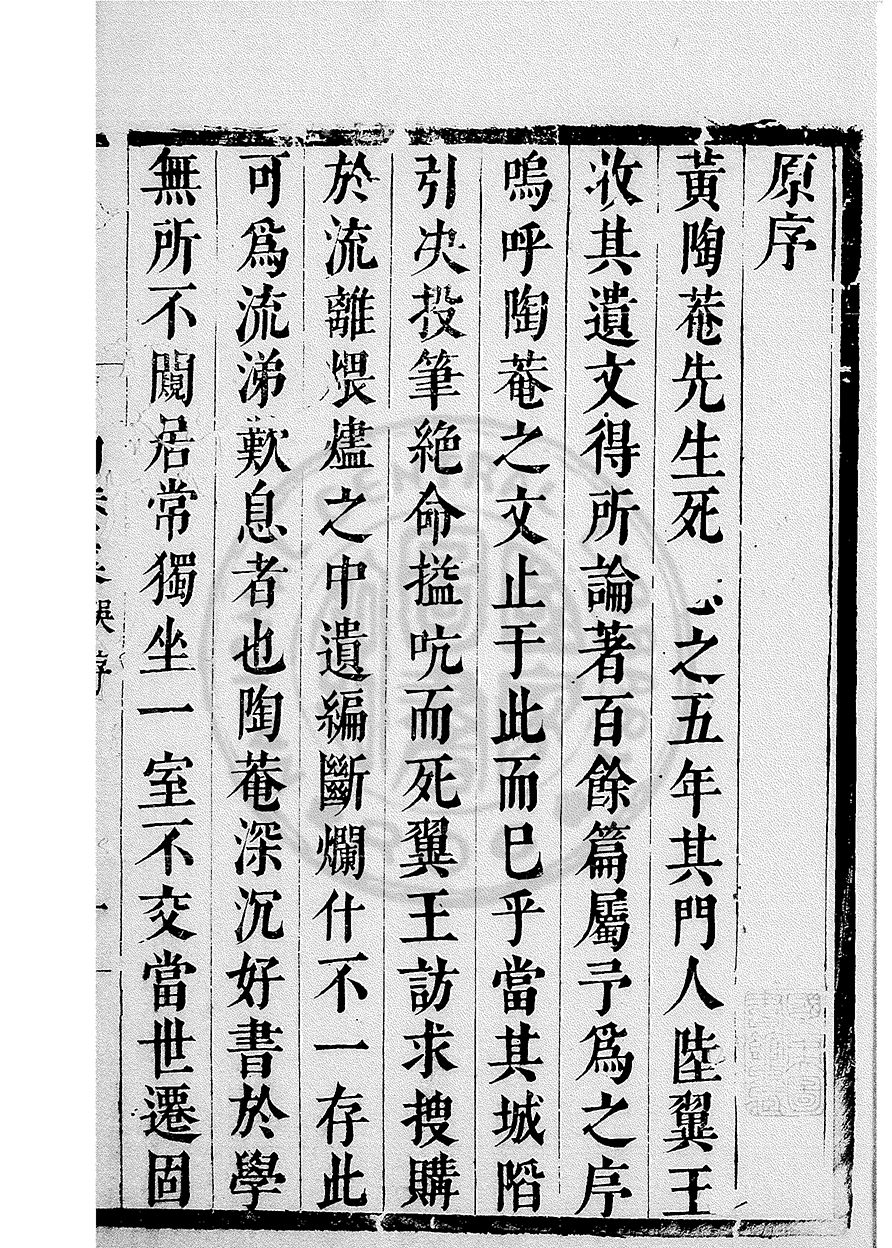 原序
黃陶菴先生死之五年其門人陸翼王
收其遺文得所論著百餘篇屬予爲之序
嗚呼陶菴之文止于此而已乎當其城陷
引决投筆絕命搤吭而死翼王訪求搜購
於流離煨燼之中遺編斷爛什不一存此
可爲流涕歎息者也陶菴深沉好書於學
無所不闚居常獨坐一室不交當世遷固